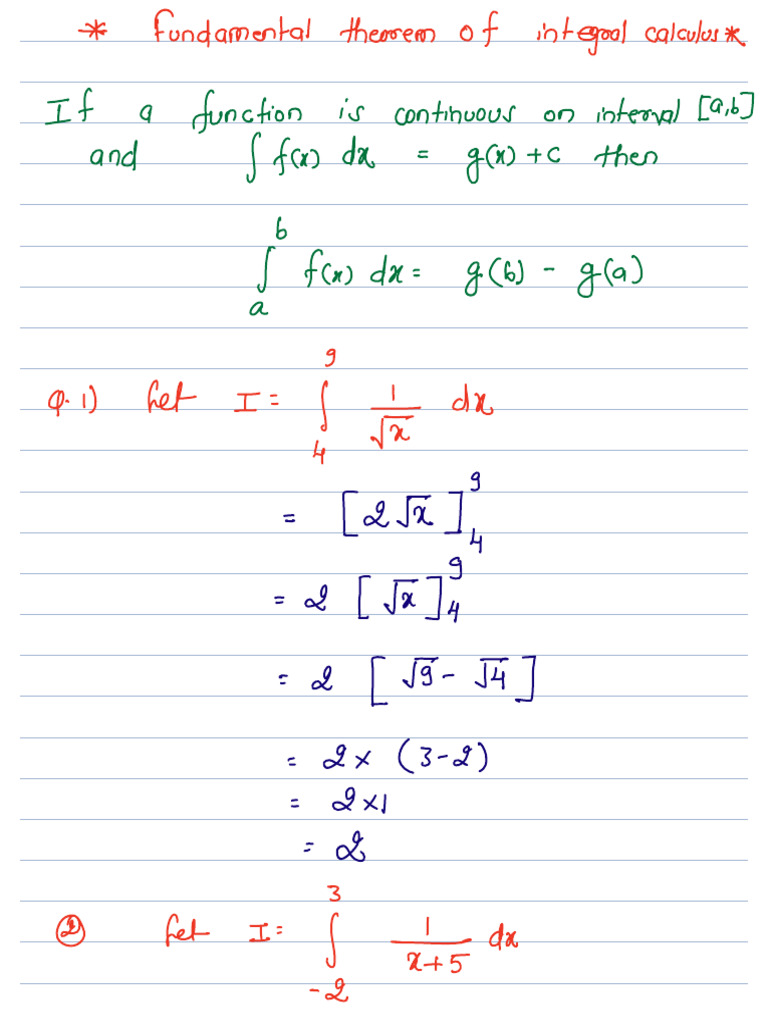 * Fundamental theorem of integral calculus *
If a function is continuous on interval [a,b]
and ∫ f(x) dx = g(x) + c then
∫_a^b f(x) dx = g(b) - g(a)
Q.1) Let I = ∫_4^9 1/√x dx
= [2√x]_4^9
= 2 [√x]_4^9
= 2 [√9 - √4]
= 2 × (3-2)
= 2×1
= 2
② Let I = ∫_-2^3 1/(x+5) dx